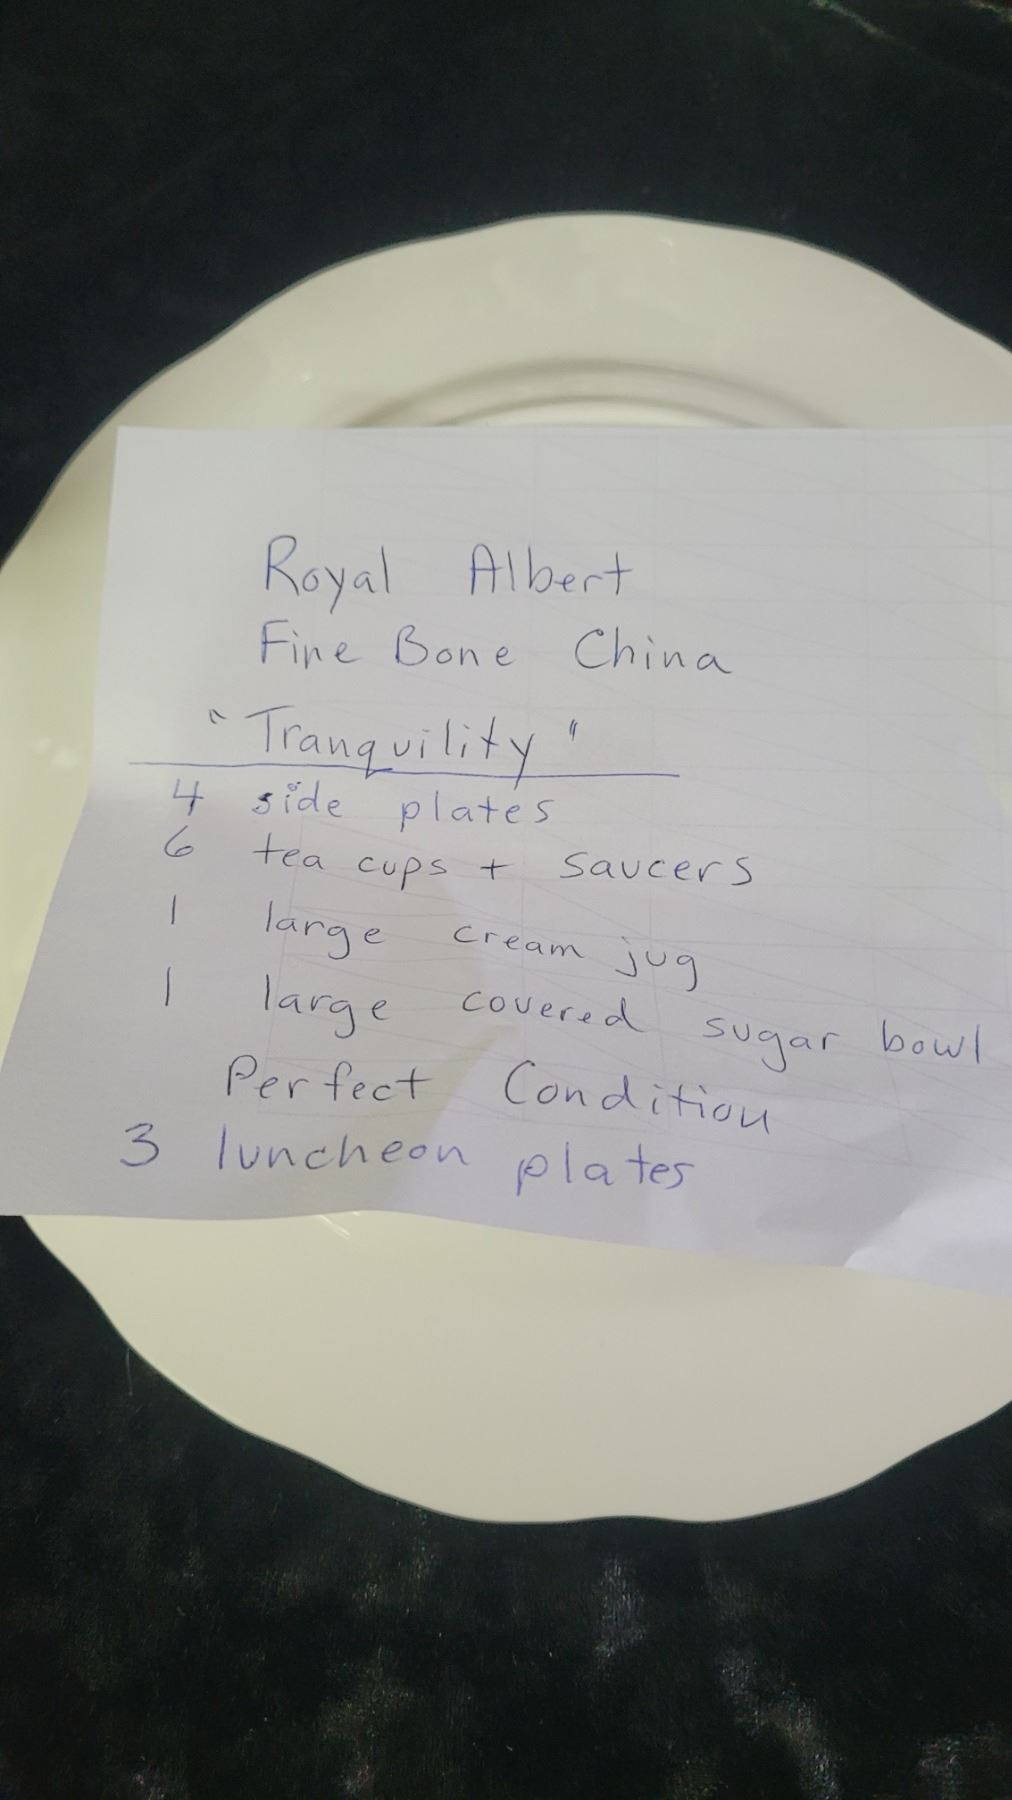 Royal Albert
Fine Bone China
"Tranquility"
4 side plates
6 tea cups + saucers
1 large cream jug
1 large covered sugar bowl
Perfect Condition
3 luncheon plates